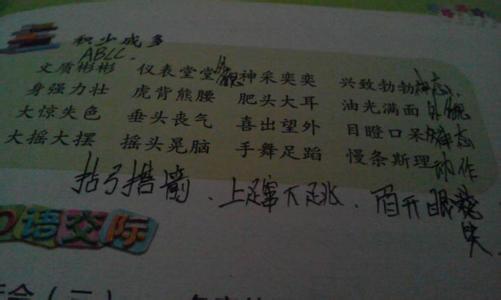 积少成多
ABLL.
文质彬彬 仪表堂堂 神采奕奕 兴致勃勃 神态
身强力壮 虎背熊腰 肥头大耳 油光满面 外貌
大惊失色 垂头丧气 喜出望外 目瞪口呆 神态
大摇大摆 摇头晃脑 手舞足蹈 慢条斯理 动作
上 下跳、眉开眼
口语交际